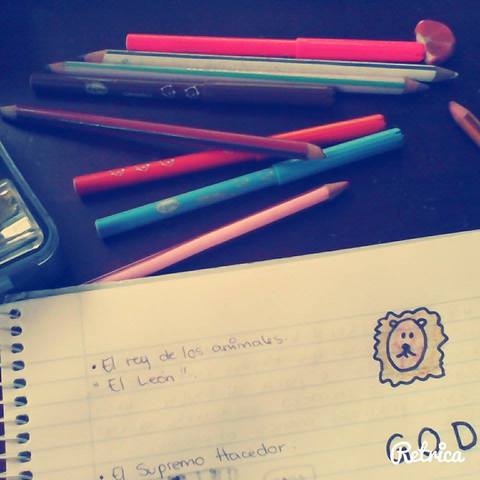 • El rey de los animales.
"El León".
• El Supremo Hacedor.
GOD
Retrica